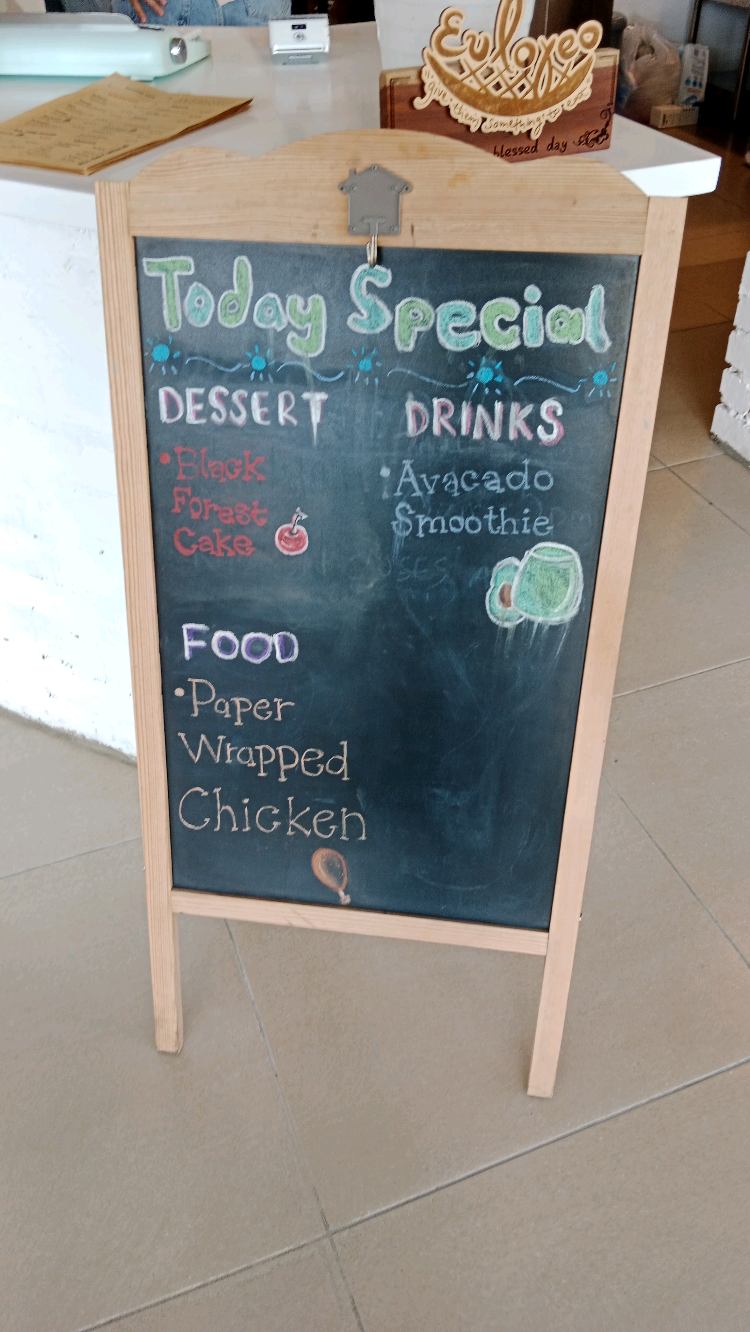 Eulogeo
give them something to eat
blessed day
Today Special
DESSERT
• Black
Forest
Cake
DRINKS
• Avacado
Smoothie
FOOD
• Paper
Wrapped
Chicken